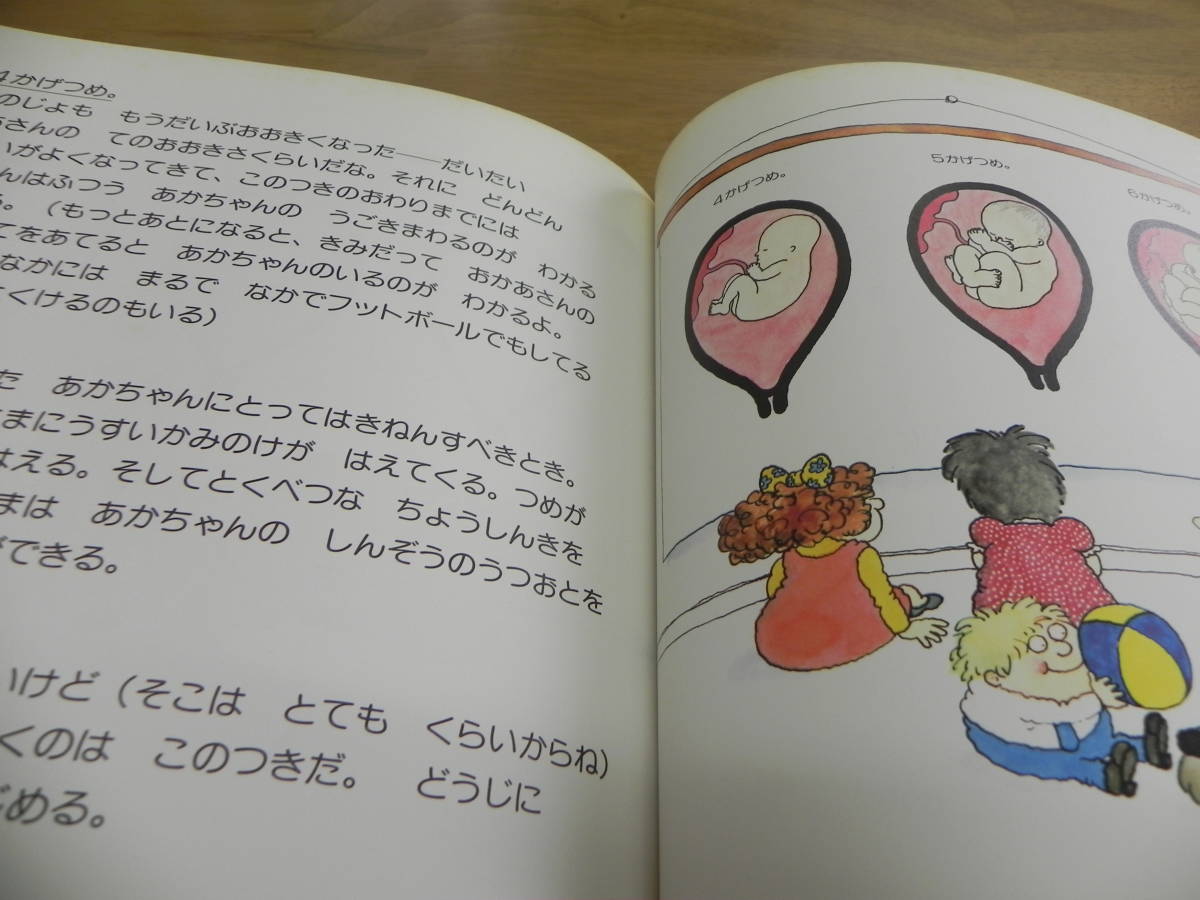 4かげつめ。
のじよも　もうだいぶおおきくなった——だいたい
さんの　てのおおきさくらいだな。それに　どんどん
いがよくなってきて、このつきのおわりまでには
んはふつう　あかちゃんの　うごきまわるのが　わかる
る。（もっとあとになると、きみだって　おかあさんの
てをあてると　あかちゃんのいるのが　わかるよ。
なかには　まるで　なかでフットボールでもしてる
くけるのもいる）
た　あかちゃんにとってはきねんすべきとき。
まにうすいかみのけが　はえてくる。つめが
はえる。そしてとくべつな　ちようしんきを
まは　あかちゃんの　しんぞうのうつおとを
ができる。
いけど（そこは　とても　くらいからね）
くのは　このつきだ。　どうじに
じめる。
4かげつめ。
5かげつめ。
6かげつめ。